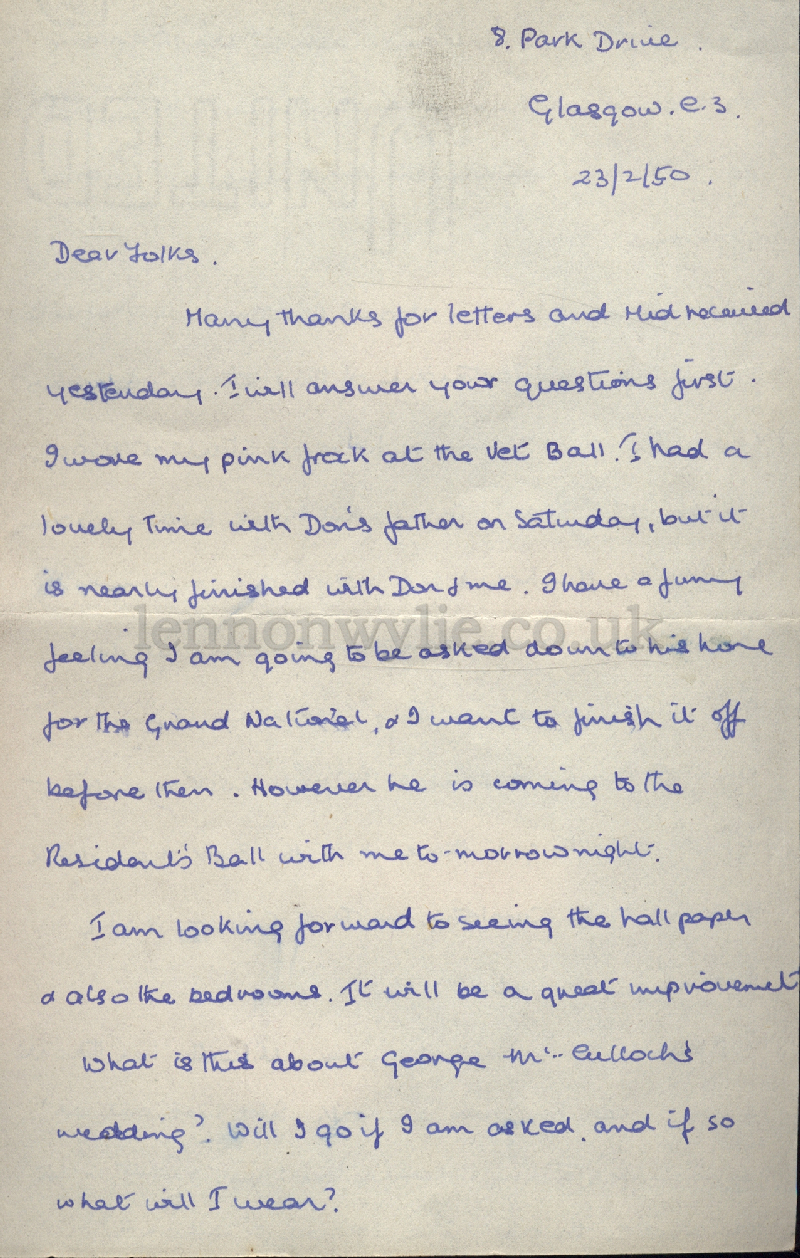 8. Park Drive.
Glasgow. C.3.
23/2/50.
Dear Folks.
Many thanks for letters and Mid received
yesterday. I will answer your questions first.
I wore my pink frock at the Vet Ball. I had a
lovely time with Don's father on Saturday, but it
is nearly finished with Don & me. I have a funny
feeling I am going to be asked down to his home
lennonwylie.co.uk
for the Grand National, & I want to finish it off
before then. However he is coming to the
Resident's Ball with me to-morrow night.
I am looking forward to seeing the hall paper
& also the bedrooms. It will be a great improvement
What is this about George Mc Culloch's
wedding?. Will I go if I am asked, and if so
what will I wear?